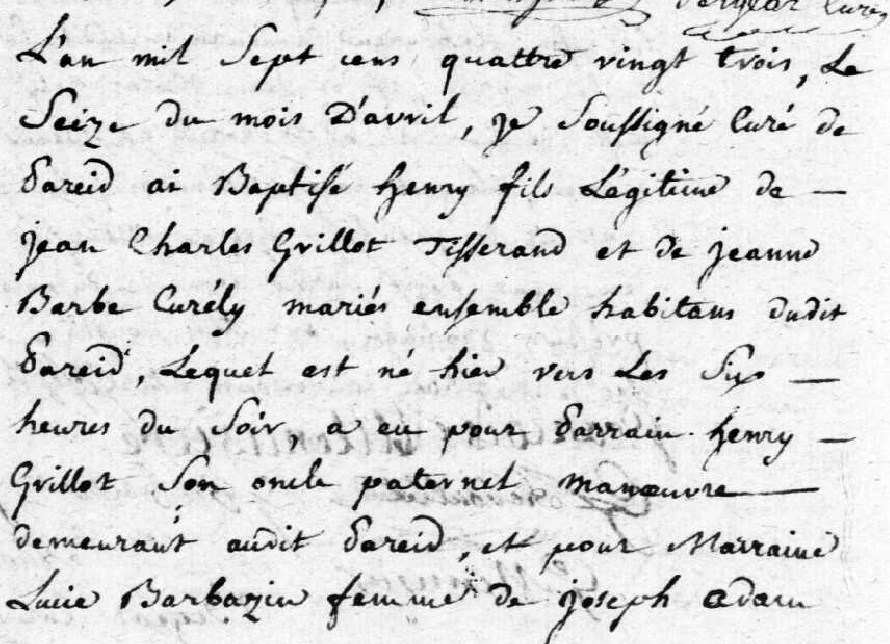 Dargeat Curé
L'an mil Sept cens quattre vingt trois, Le
Seize du mois D'avril, je Soussigné Curé de
Pareid ai Baptisé henry fils Légitime de —
jean Charles Grillot Tisserand et de jeanne
Barbe Curély mariés ensemble habitans dudit
Pareid, Lequel est né hier vers Les Six —
heures du Soir, a eu pour Parrain henry —
Grillot Son oncle paternel manœuvre —
demeurant audit Pareid, et pour Marraine
Lucie Barbazin femme de joseph adam